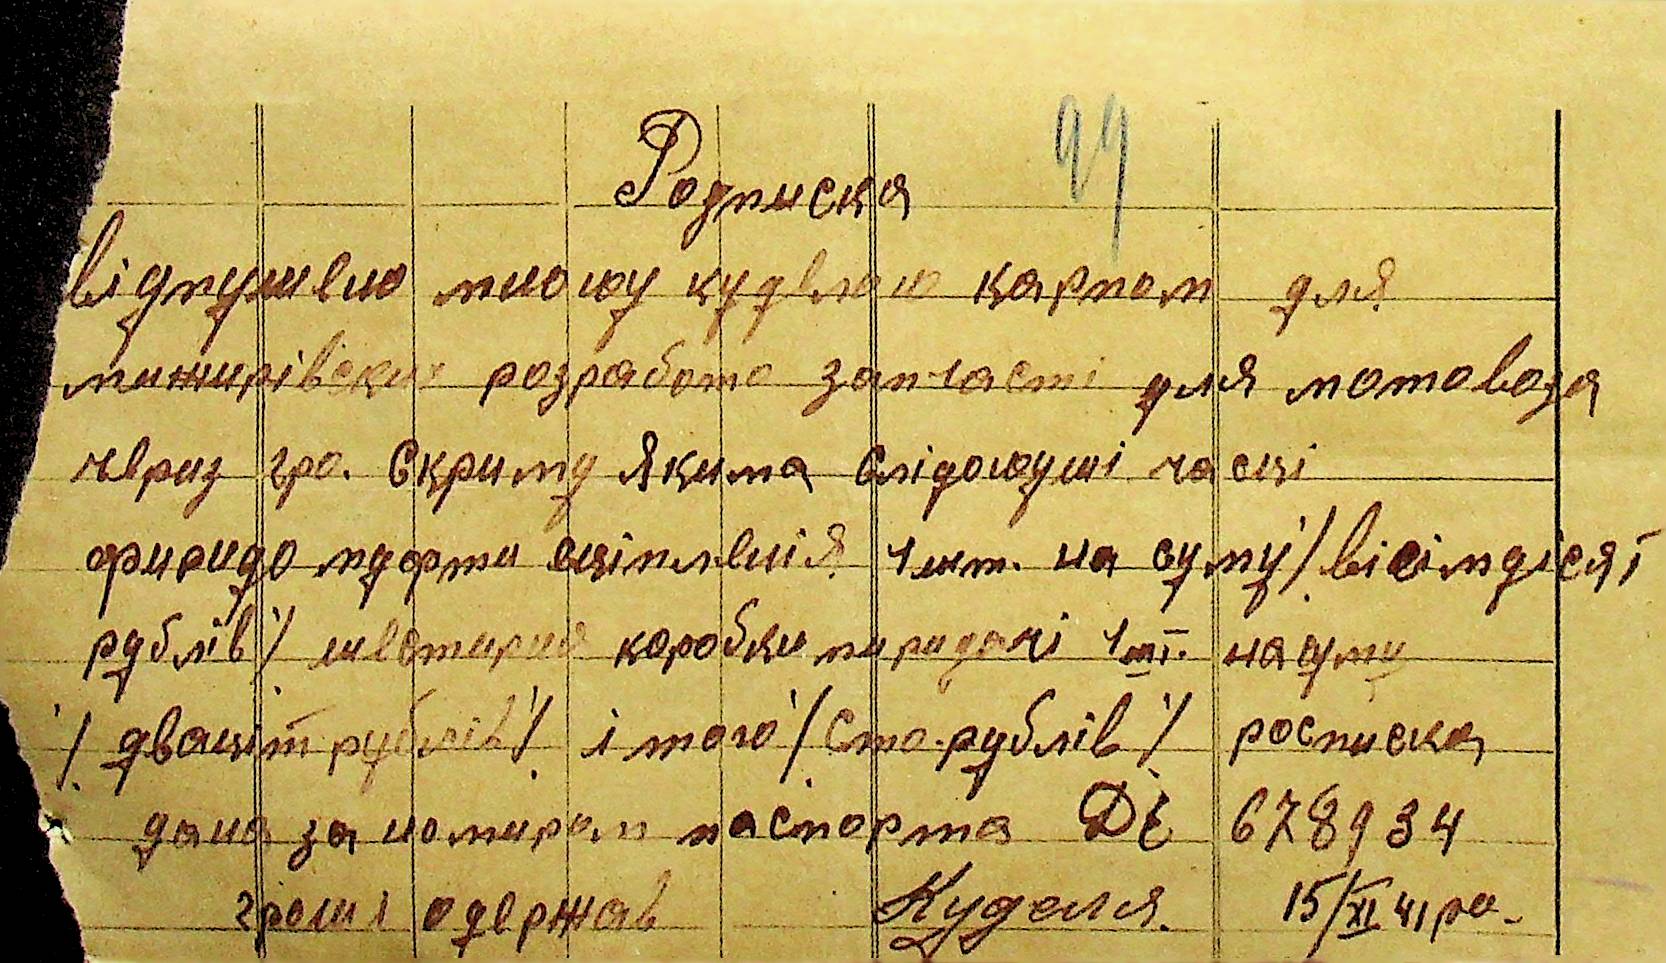 29
Родписка
відпушено мною куделою карпом для
мижирівских розработо запчасті для мотовоза
чериз гро. Скрипу Якима слідоющі часці
фиридо муфти сціпленія 1 шт. на суму /вісімдісят
рублів/ шестирня коробки пиридачі 1 шт. на суму
/двацит рублів/ ітого /Сто рублів/ росписка
дана за номиром паспорта ДЕ 678934
гроші одержав Куделя. 15/XI 41 ро.